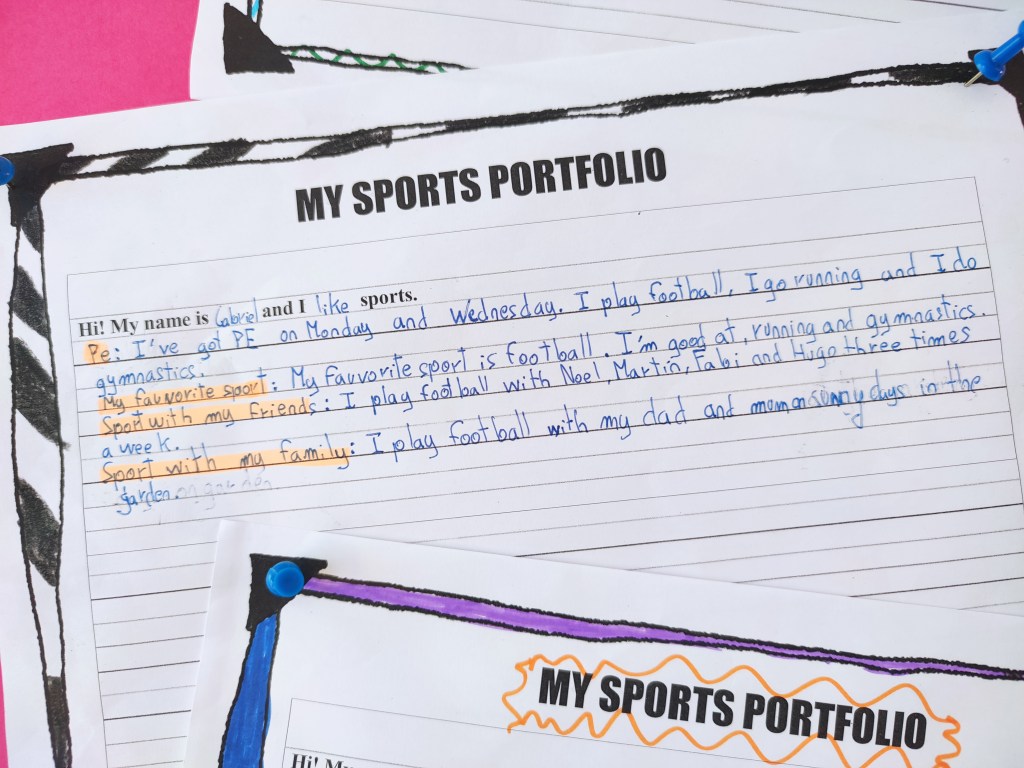 MY SPORTS PORTFOLIO
Hi! My name is Gabriel and I like sports.
Pe: I've got PE on Monday and Wednesday. I play football, I go running and I do
gymnastics.
My favvorite sport: My favvorite sport is football. I'm good at, running and gymnastics.
Sport with my friends: I play football with Noel, Martin, Fabi and Hugo three times
a week.
Sport with my family: I play football with my dad and mom on sunny days in the
garden.
MY SPORTS PORTFOLIO
Hi!